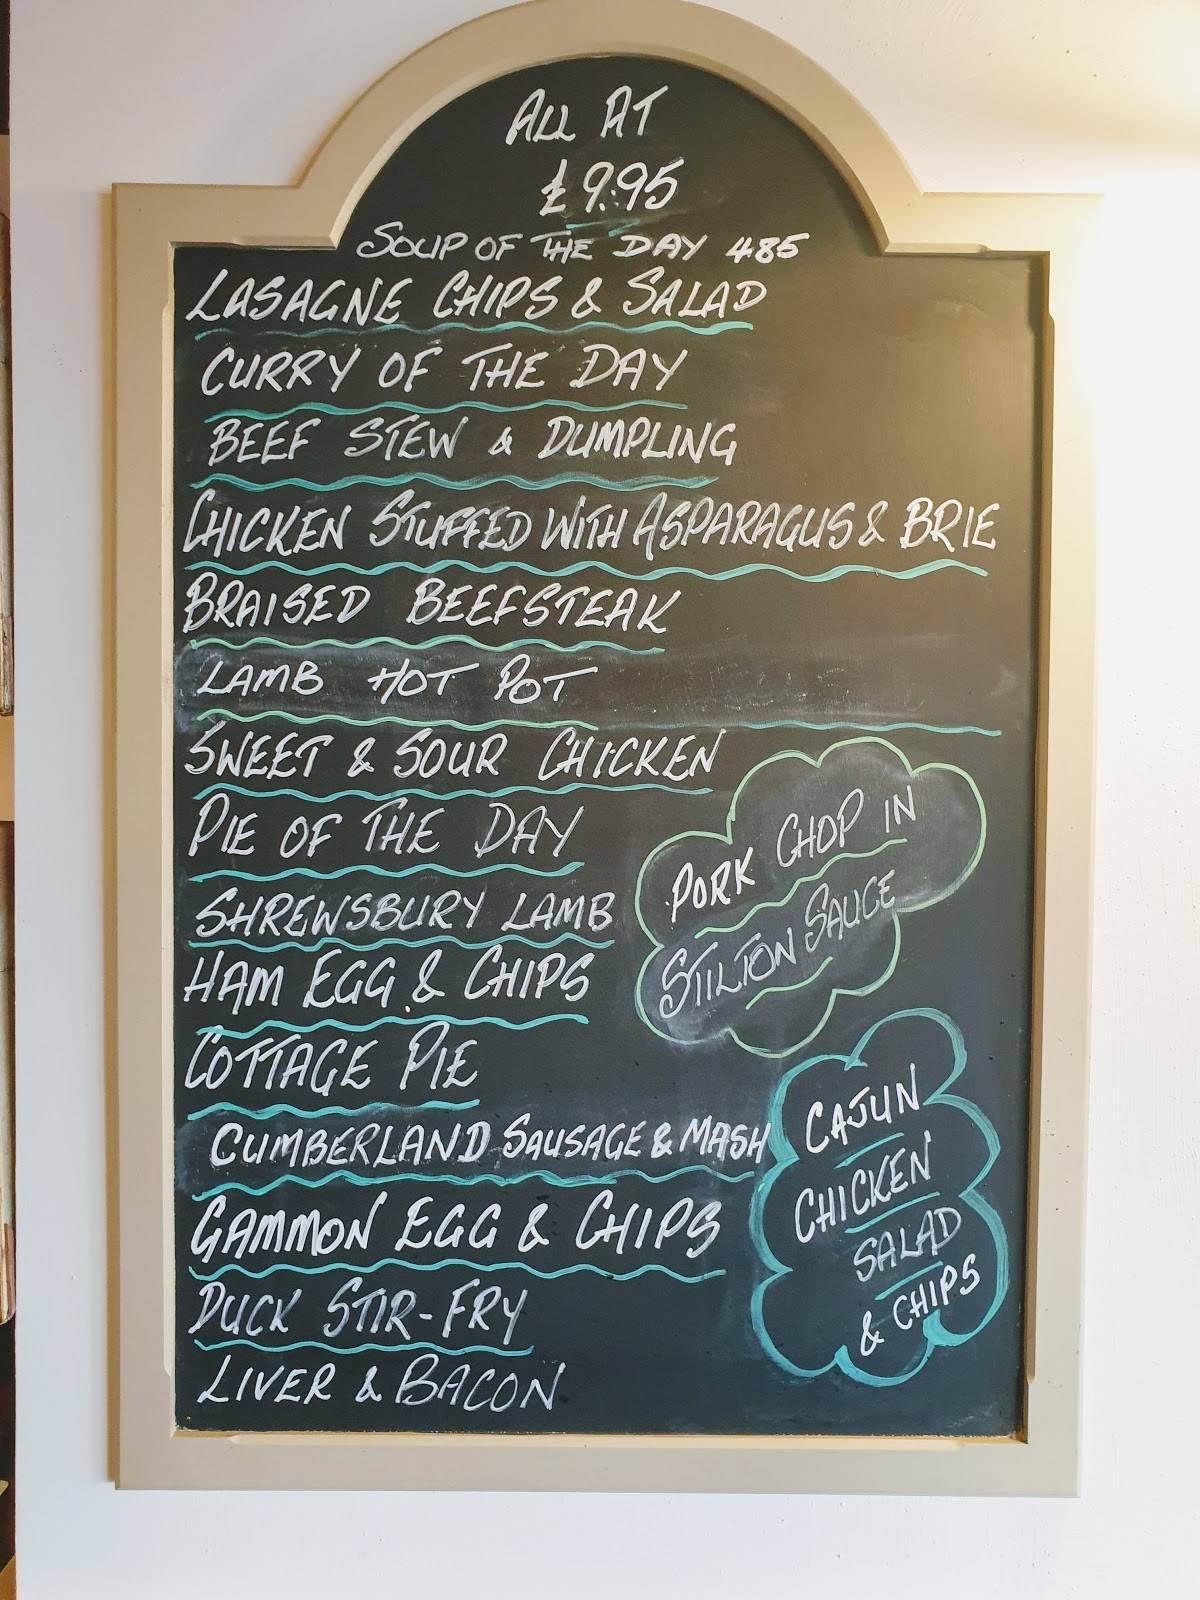 ALL AT
£9.95
SOUP OF THE DAY 4.85
LASAGNE CHIPS & SALAD
CURRY OF THE DAY
BEEF STEW & DUMPLING
CHICKEN STUFFED WITH ASPARAGUS & BRIE
BRAISED BEEFSTEAK
LAMB HOT POT
SWEET & SOUR CHICKEN
PIE OF THE DAY
SHREWSBURY LAMB
HAM EGG & CHIPS
COTTAGE PIE
CUMBERLAND SAUSAGE & MASH
GAMMON EGG & CHIPS
DUCK STIR-FRY
LIVER & BACON
PORK CHOP IN
STILTON SAUCE
CAJUN
CHICKEN
SALAD
& CHIPS